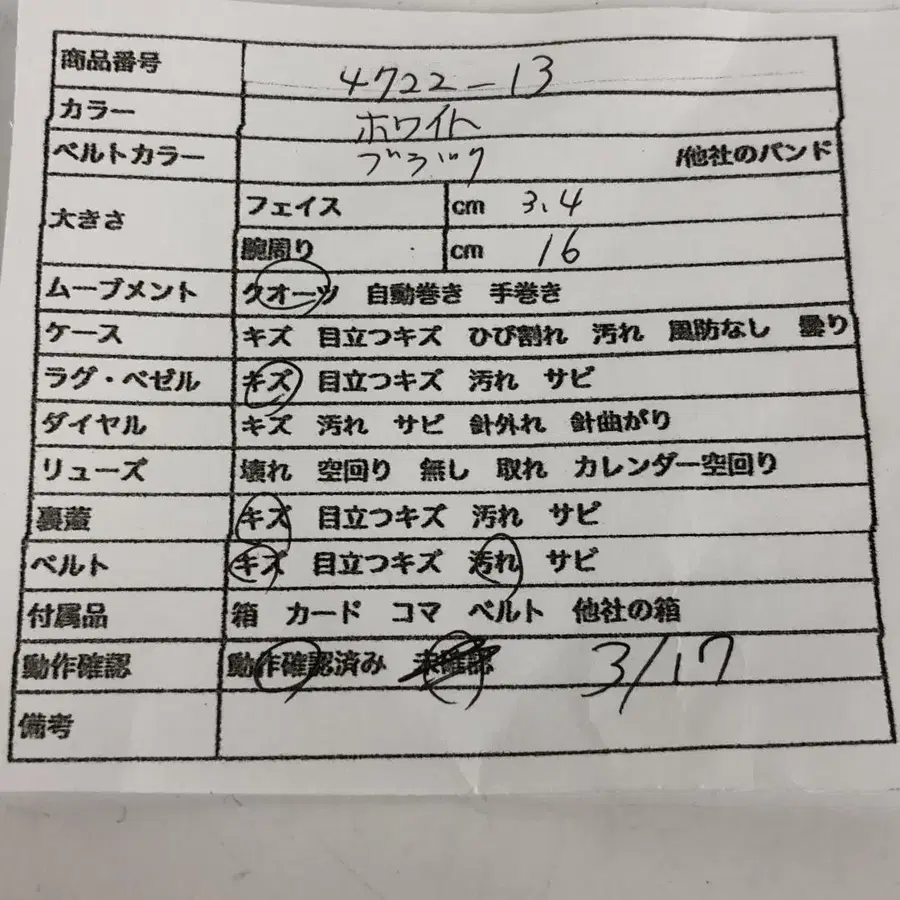 商品番号 4722-13
カラー ホワイト
ベルトカラー ブラック /他社のバンド
大きさ フェイス cm 3.4
腕周り cm 16
ムーブメント クオーツ 自動巻き 手巻き
ケース キズ 目立つキズ ひび割れ 汚れ 風防なし 曇り
ラグ・ベゼル キズ 目立つキズ 汚れ サビ
ダイヤル キズ 汚れ サビ 針外れ 針曲がり
リューズ 壊れ 空回り 無し 取れ カレンダー空回り
裏蓋 キズ 目立つキズ 汚れ サビ
ベルト キズ 目立つキズ 汚れ サビ
付属品 箱 カード コマ ベルト 他社の箱
動作確認 動作確認済み 未確認 3/17
備考